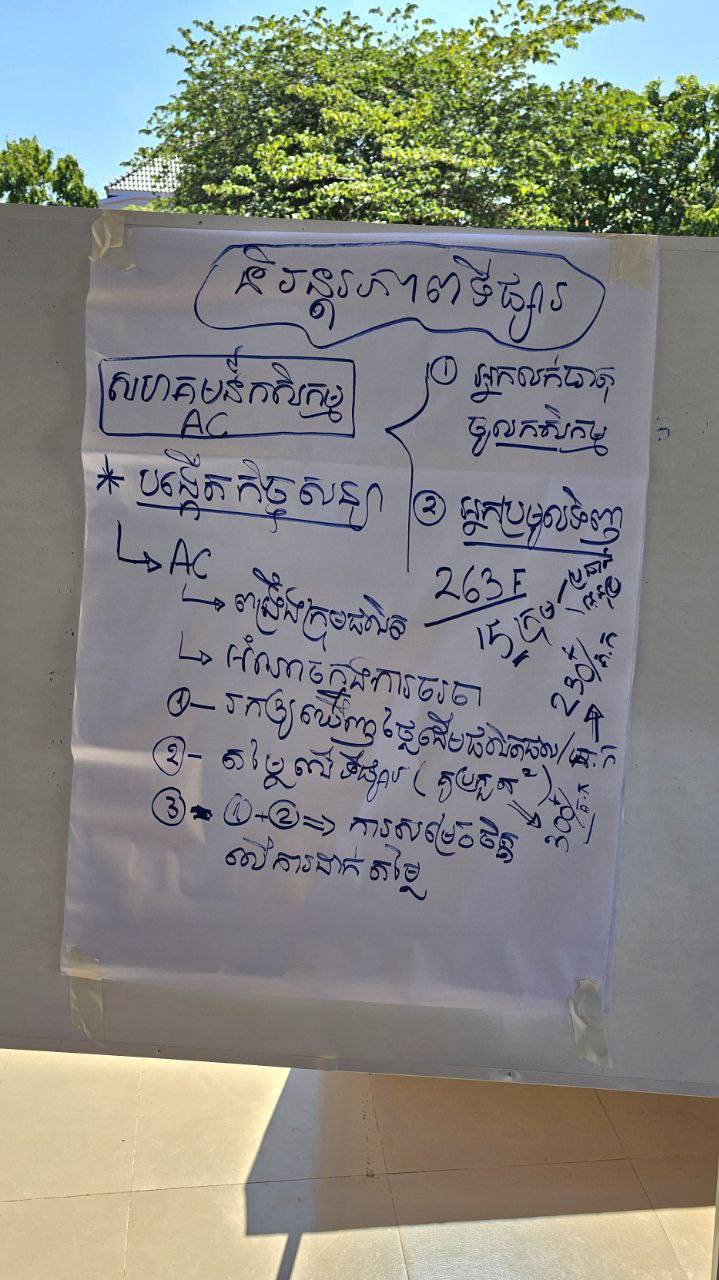 និរន្តរភាពទីផ្សារ
សហគមន៍កសិកម្ម
AC
① អ្នកលក់ធាតុ
ចូលកសិកម្ម
② អ្នកប្រមូលទិញ
* បង្កើតកិច្ចសន្យា
↳ AC
↳ ពង្រឹងក្រុមផលិត
↳ អំណាចក្នុងការចរចា
263 F
ក្រុម
① – រកឲ្យឃើញថ្លៃដើមផលិតផល/គ.ក
② – តម្លៃលើទីផ្សារ
230៛/គ.ក
③ - ① + ② => ការសម្រេចចិត្ត
លើការដាក់តម្លៃ
300៛/គ.ក